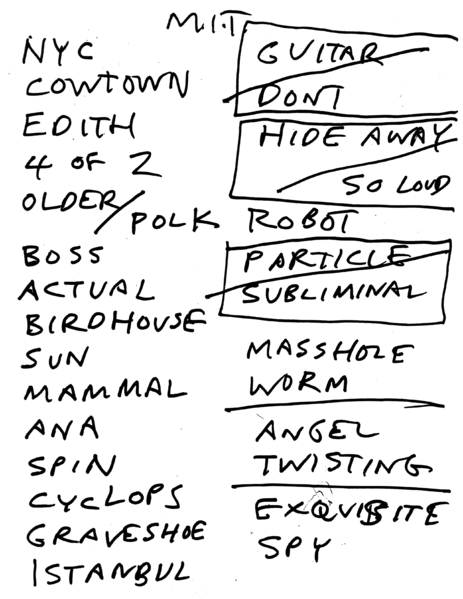 M.I.T
NYC
COWTOWN
EDITH
4 OF 2
OLDER/POLK
BOSS
ACTUAL
BIRDHOUSE
SUN
MAMMAL
ANA
SPIN
CYCLOPS
GRAVESHOE
ISTANBUL
GUITAR
DONT
HIDE AWAY
SO LOUD
ROBOT
PARTICLE
SUBLIMINAL
MASSHOLE
WORM
ANGEL
TWISTING
EXQUISITE
SPY